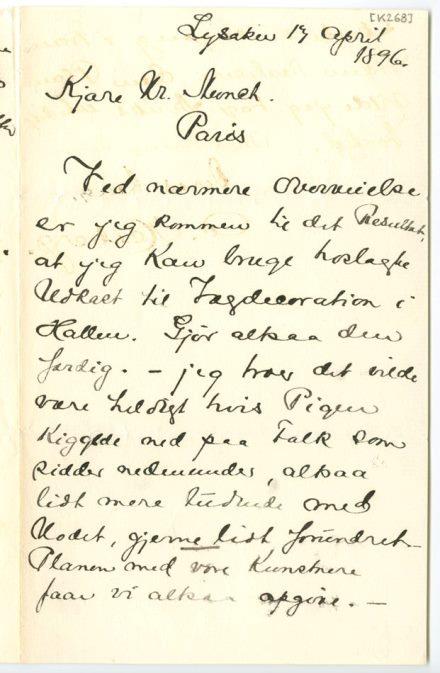 [K268]
Lysaker 17 april
1896.
Kjære Hr. Munch.
Paris
Ved nærmere Overveielse
er jeg kommen til det Resultat,
at jeg kan bruge hoslagte
Udkast til Vægdecoration i
Hallen. Gjör altsaa den
færdig. – jeg troer det vilde
være heldigt hvis Pigen
kiggede ned paa Folk som
sidder nedenunder, altsaa
lidt mere ludende med
Hodet, gjerne lidt forundret –
Planen med vore Kunstnere
faar vi altsaa opgive. –